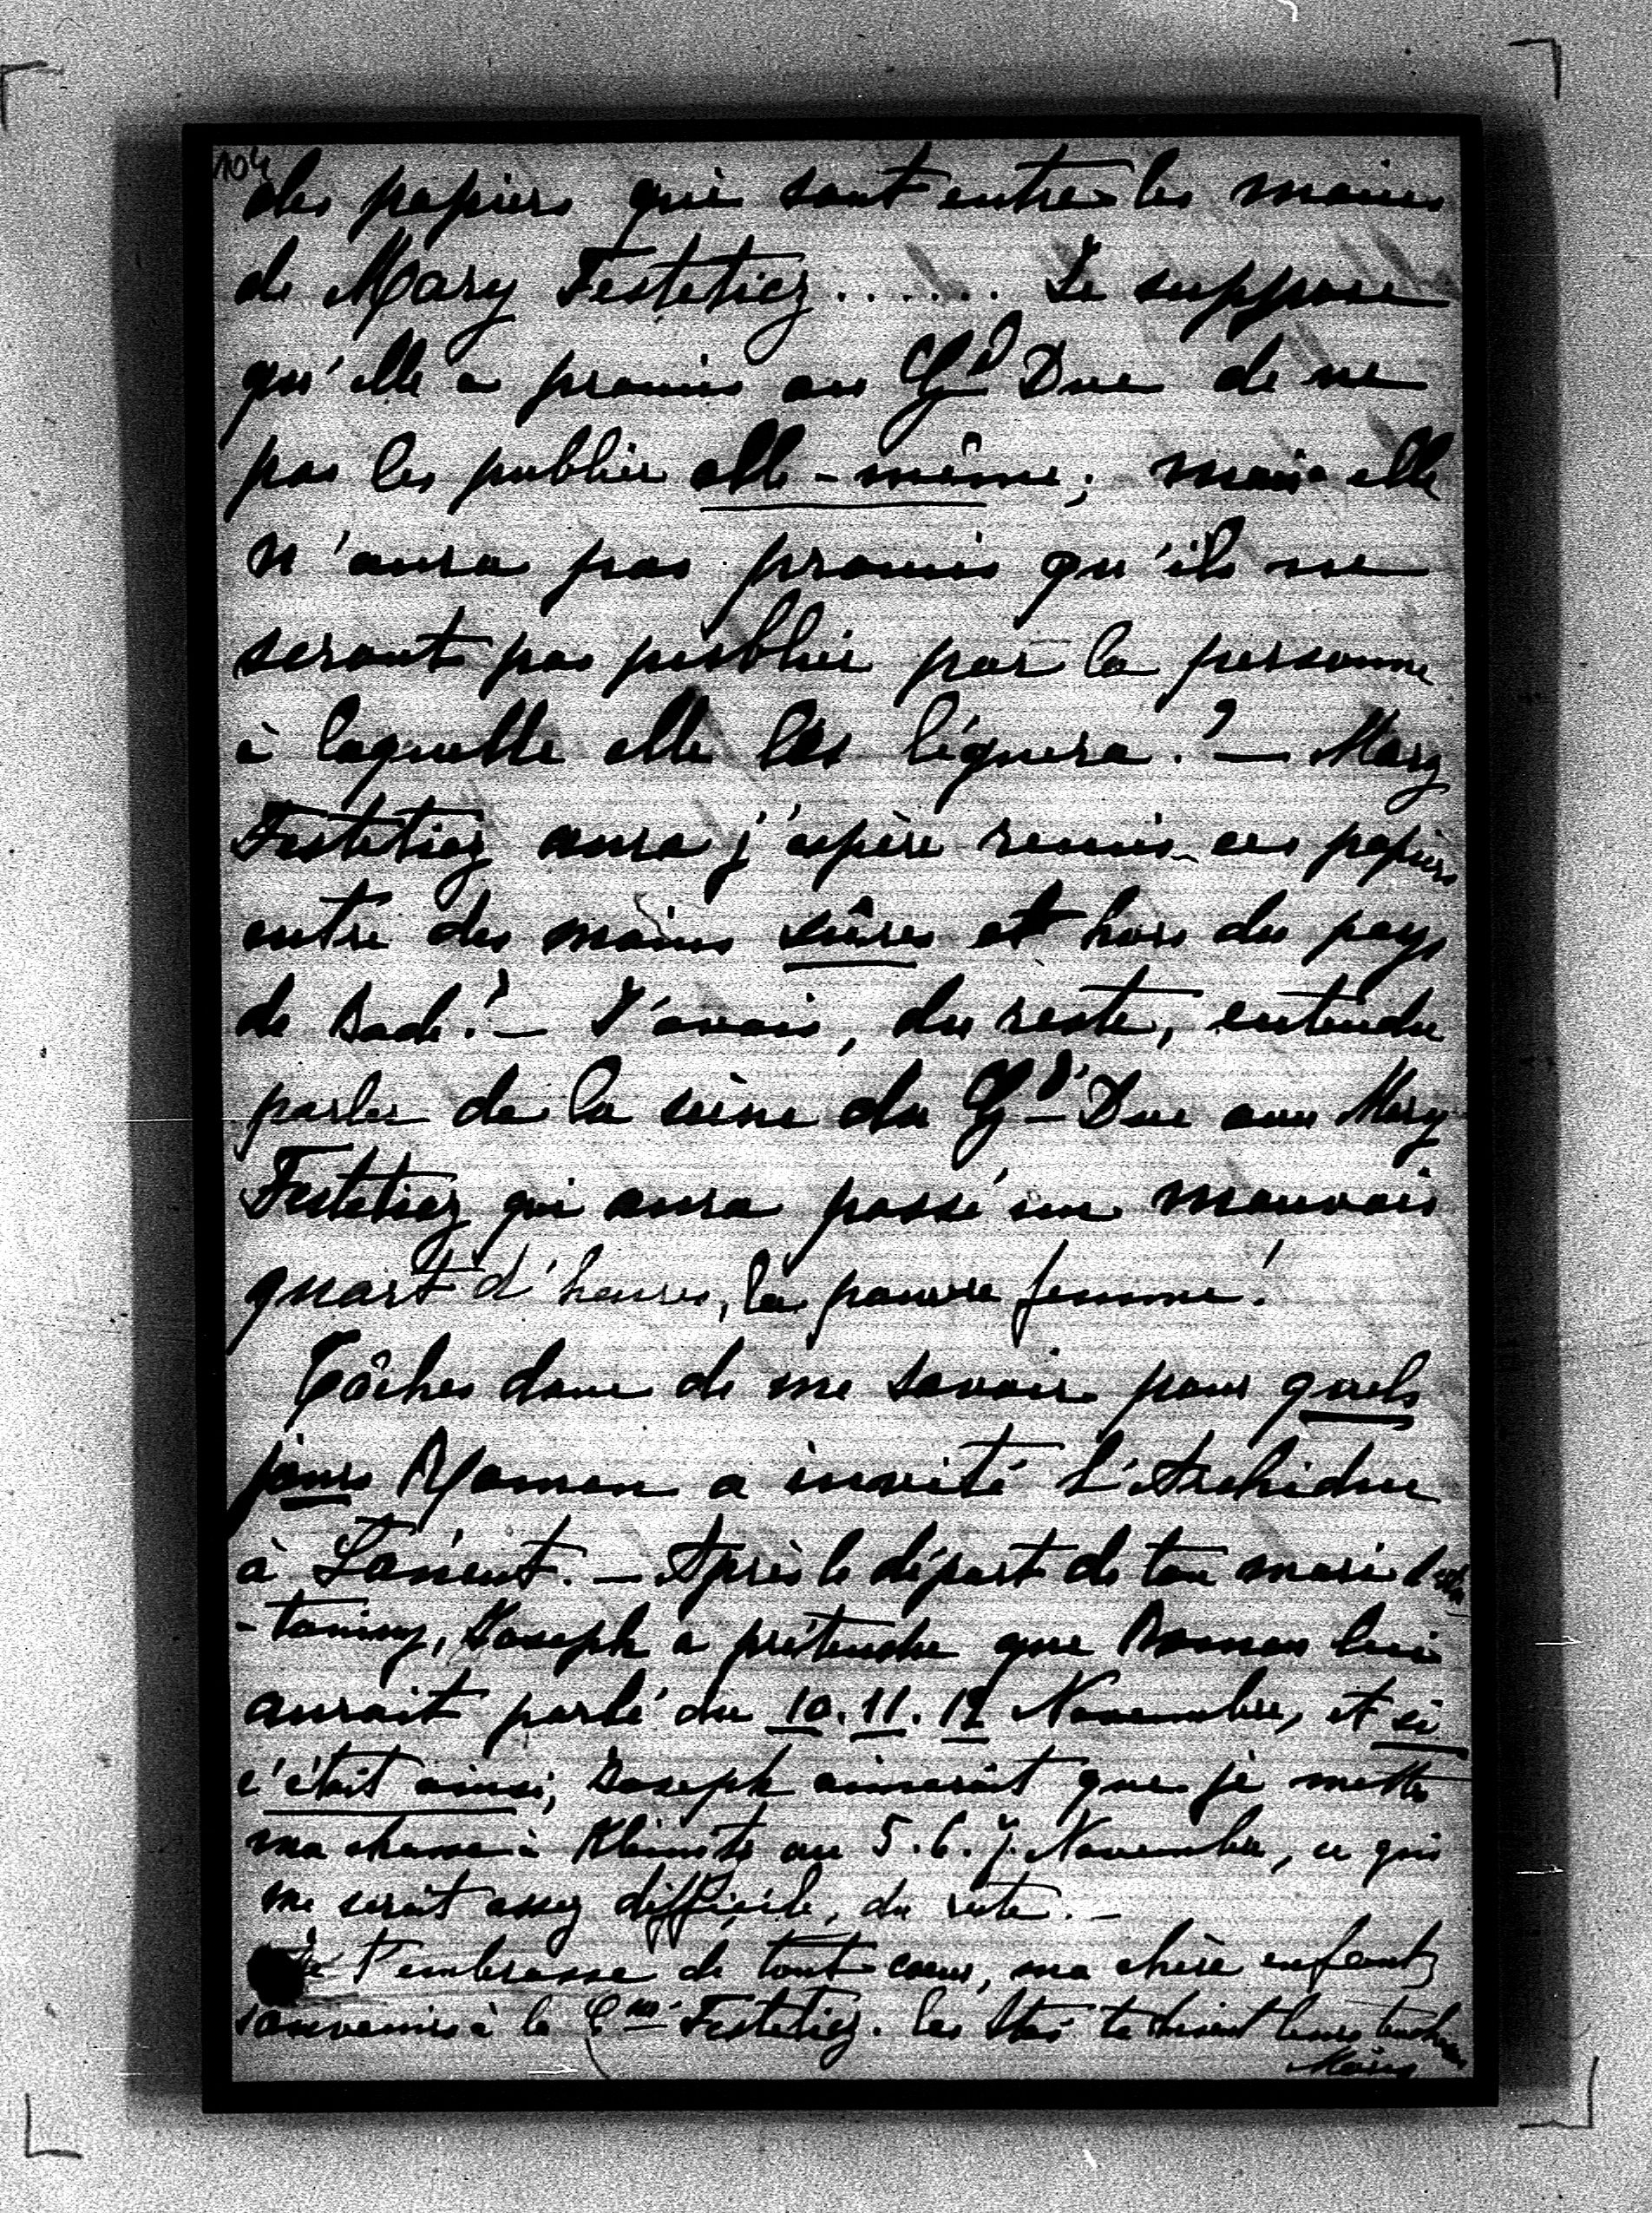 104
des papiers qui sont entre les mains
de Mary Festetics...... Je suppose
qu'elle a promis au Gd Duc de ne
pas les publier elle-même; mais elle
n'aura pas promis qu'ils ne
seront pas publiés par la personne
à laquelle elle les léguera? — Mary
Festeticz aura j'espère remis ces papiers
entre des mains sûres et hors du pays
de Bade? — J'avais, du reste, entendu
parler de la scène du Gd Duc avec Mary
Festeticz qui aura passé un mauvais
quart d'heure, la pauvre femme!
Tâches donc de me savoir pour quels
jours Roman a invité l'Archiduc
à Łancut. — Après le départ de ton mari
Joseph a prétendu que Roman lui
aurait parlé du 10. 11. 12 Novembre, et si
c'était ainsi, Joseph aimerait que je mette
ma chasse à au 5. 6. 7. Novembre, ce qui
me serait assez difficile, du reste. —
Je t'embrasse de tout cœur, ma chère enfant,
souvenirs à la Csse Festeticz. Les te disent leurs